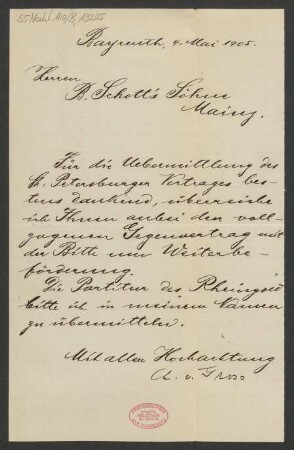 55 Nachl 100/B, 19255
Bayreuth, 4. Mai 1905.
Herren
B. Schott's Söhne
Mainz.
Für die Uebermittlung des
St. Petersburger Vertrages bes-
tens dankend, überreiche
ich Ihnen anbei den voll-
zogenen Gegenvertrag mit
der Bitte um Weiterbe-
förderung.
Die Partitur des Rheingold
bitte ich in meinem Namen
zu übermitteln.
Mit aller Hochachtung
A. v. Gross